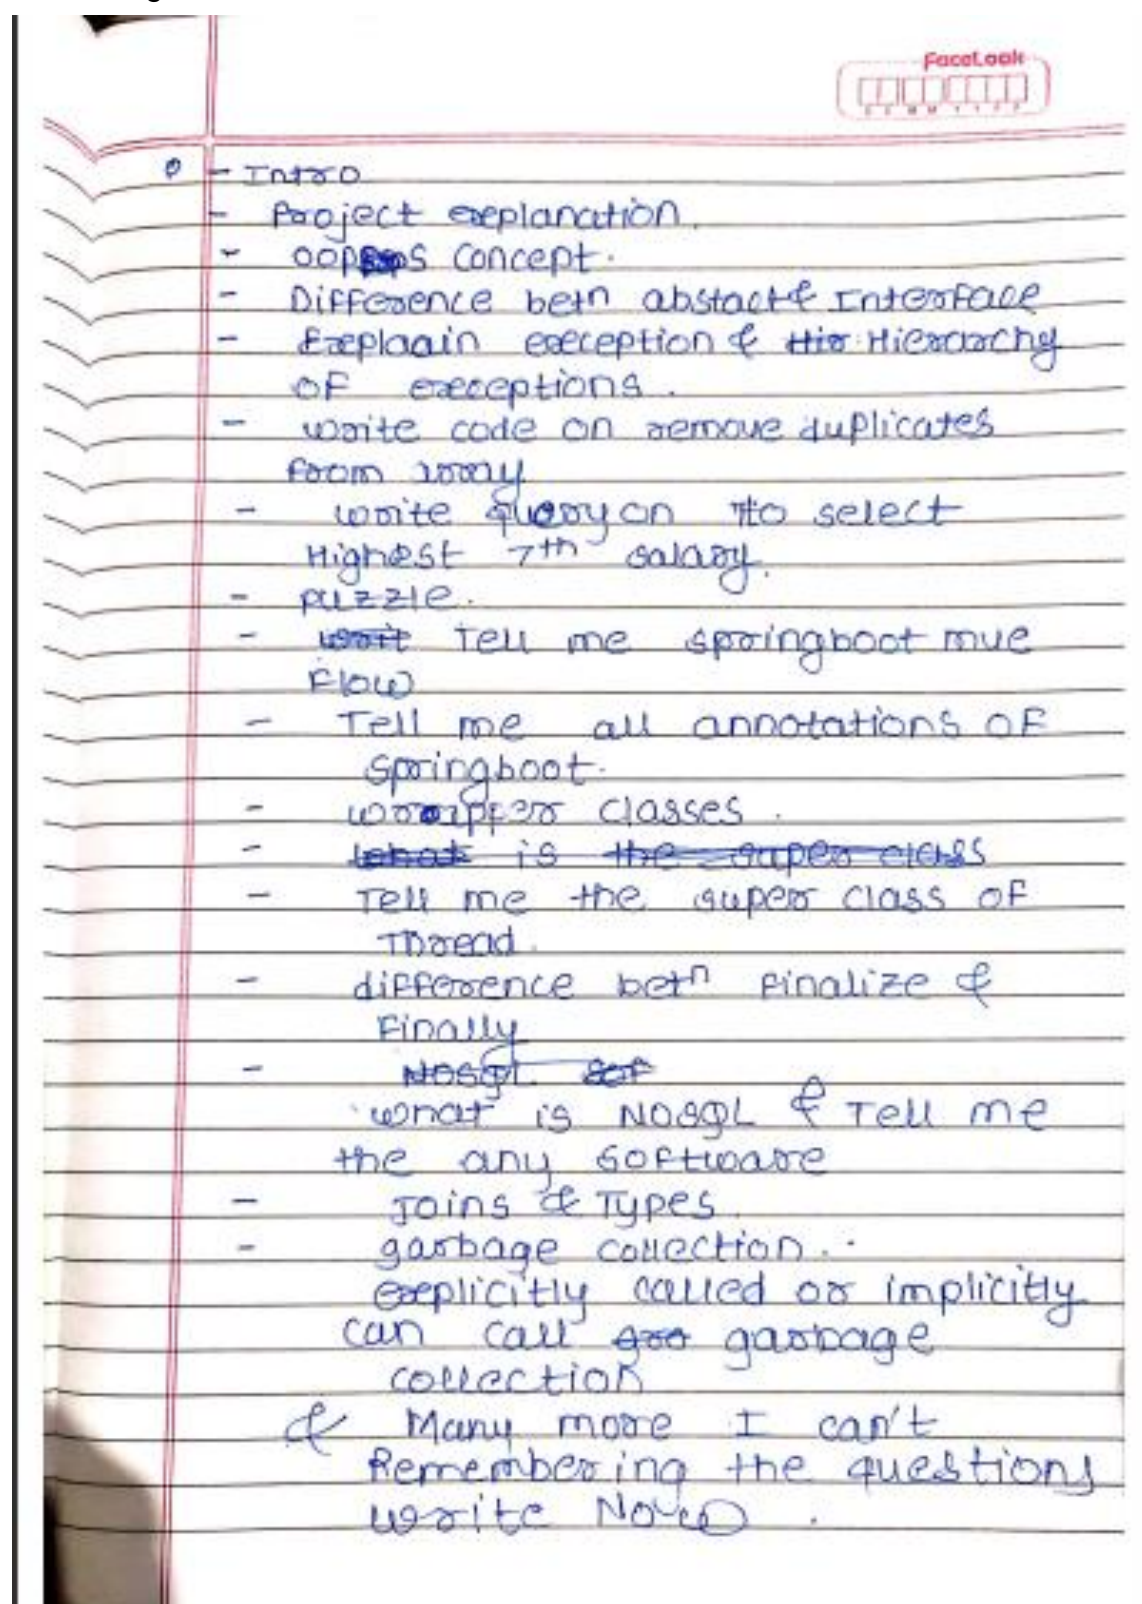 FaceLook
D D M M Y Y Y Y
- Intro
- Project explanation.
- OOPS concept.
- Difference betn abstact & Interface
- Explaain exception & Hir Hierarchy
of exceptions.
- write code on remove duplicates
from array
- write query on to select
Highest 7th salary.
- puzzle.
- writ Tell me springboot mvc
Flow
- Tell me all annotations of
springboot.
- wrapper classes.
- what is the super class
- Tell me the super class of
Thread.
- difference betn finalize &
Finally
- NOSQL sof
what is NOSQL & Tell me
the any software
- Joins & Types.
- garbage collection..
explicitly called or implicitly
can call gar garbage
collection
& Many more I can't
Remembering the questions
write Now.